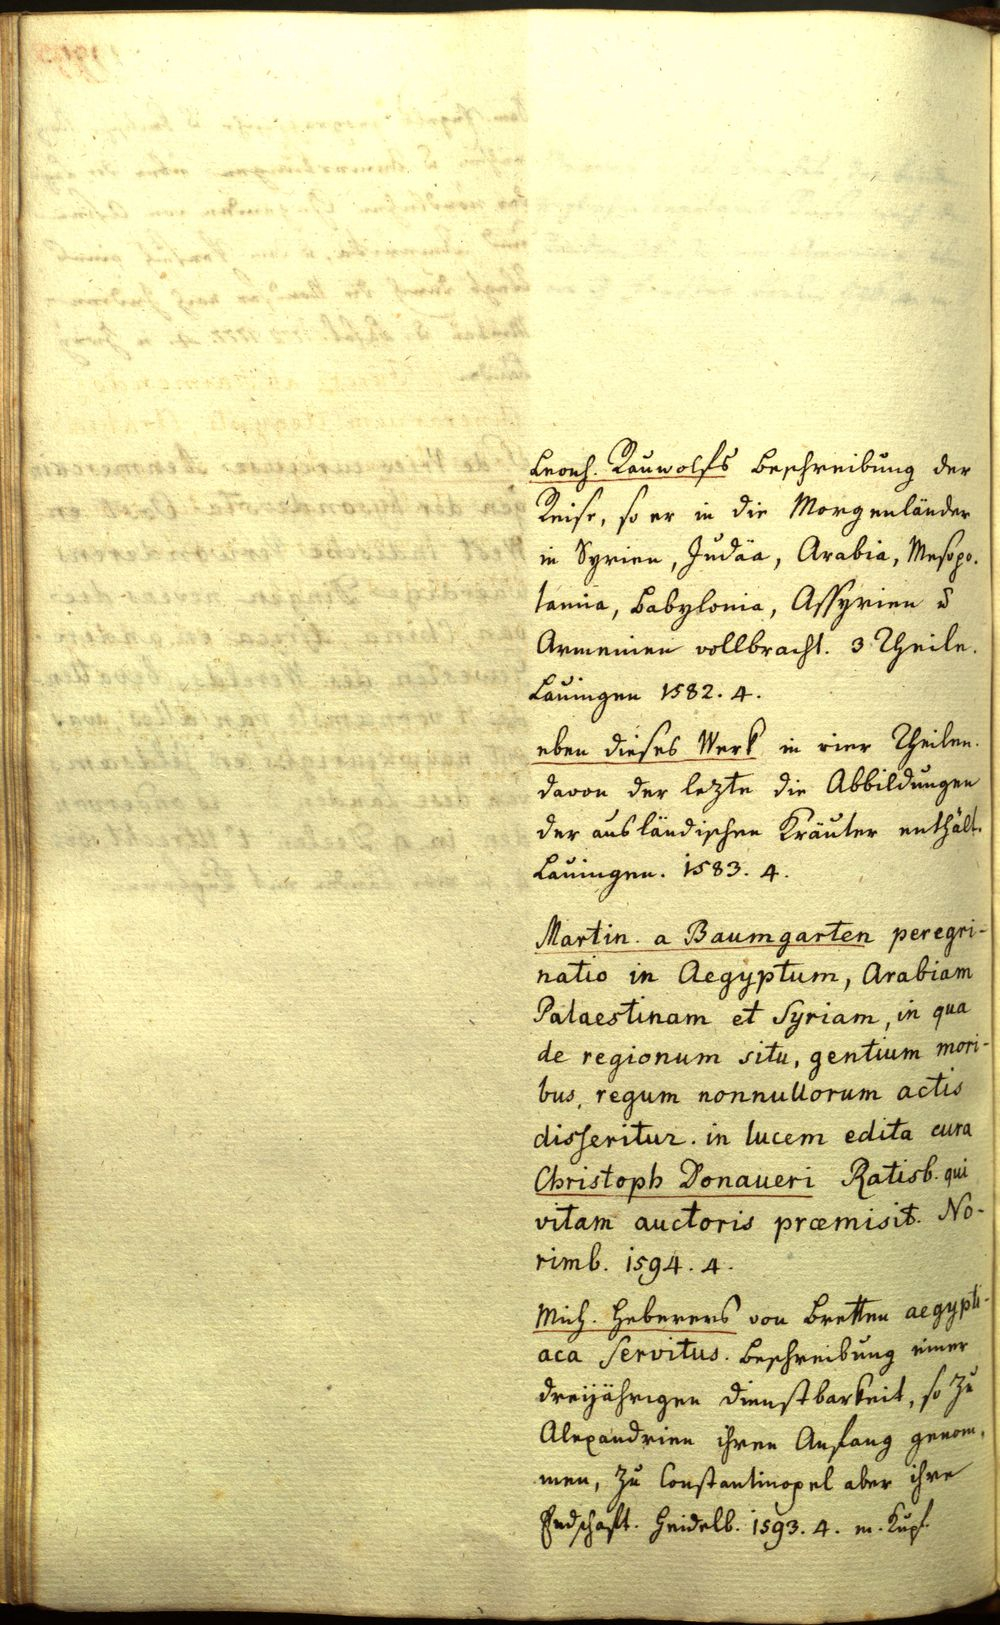 Leonh. Rauwolfs Beschreibung der
Reise, so er in die Morgenländer
in Syrien, Judäa, Arabia, Mesopo-
tamia, Babylonia, Assyrien u
Armenien vollbracht. 3 Theile.
Lauingen 1582. 4.
eben dieses Werk in vier Theilen.
davon der lezte die Abbildungen
der ausländischen Kräuter enthält.
Lauingen. 1583. 4.
Martin. a Baumgarten peregri-
natio in Aegyptum, Arabiam
Palaestinam et Syriam, in qua
de regionum situ, gentium mori-
bus, regum nonnullorum actis
disseritur. in lucem edita cura
Christoph Donaueri Ratisb. qui
vitam auctoris præmisit. No-
rimb. 1594. 4.
Mich. Heberers von Bretten aegypti-
aca Servitus. Beschreibung einer
dreijährigen Dienstbarkeit, so zu
Alexandrien ihren Anfang genom-
men, zu Constantinopel aber ihre
Endschaft. Heidelb. 1593. 4. m. Kupf.